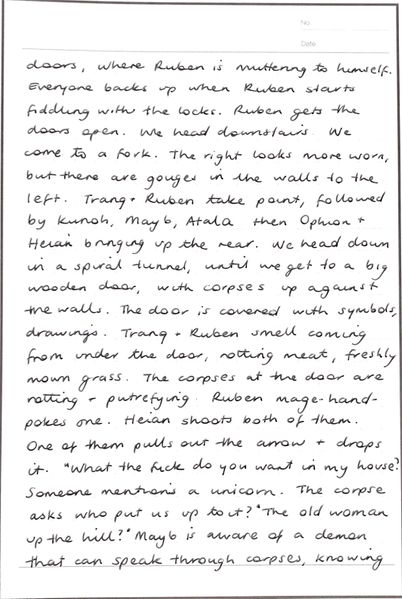 No
Date
doors, where Ruben is muttering to himself.
Everyone backs up when Ruben starts
fiddling with the locks. Ruben gets the
doors open. We head downstairs. We
come to a fork. The right looks more worn,
but there are gouges in the walls to the
left. Trang + Ruben take point, followed
by Kunoh, Mayb, Atala then Ophion +
Heian bringing up the rear. We head down
in a spiral tunnel, until we get to a big
wooden door, with corpses up against
the walls. The door is covered with symbols,
drawings. Trang + Ruben smell coming
from under the door, rotting meat, freshly
mown grass. The corpses at the door are
rotting + putrefying. Ruben mage-hand-
pokes one. Heian shoots both of them.
One of them pulls out the arrow + drops
it. "What the fuck do you want in my house?
Someone mentions a unicorn. The corpse
asks who put us up to it? "The old woman
up the hill?" Mayb is aware of a demon
that can speak through corpses, knowing